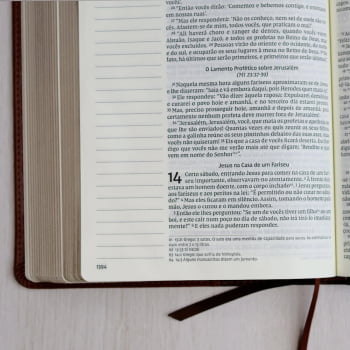 26 "Então vocês dirão: 'Comemos e bebemos contigo, e ensinaste
em nossas ruas'.
27 "Mas ele responderá: 'Não os conheço, nem sei de onde são vo-
cês. Afastem-se de mim, todos vocês, que praticam o mal!'
28 "Ali haverá choro e ranger de dentes, quando vocês virem
Abraão, Isaque e Jacó, e todos os profetas no Reino de Deus, mas
vocês excluídos. 29 Pessoas virão do oriente e do ocidente, do norte e
do sul, e ocuparão os seus lugares à mesa no Reino de Deus. 30 De
fato, há últimos que serão primeiros, e primeiros que serão últimos".
O Lamento Profético sobre Jerusalém
(Mt 23.37-39)
31 Naquela mesma hora alguns fariseus aproximaram-se de Jesus
e lhe disseram: "Saia e vá embora daqui, pois Herodes quer matá-lo".
32 Ele respondeu: "Vão dizer àquela raposa: Expulsarei demônios
e curarei o povo hoje e amanhã, e no terceiro dia estarei pronto.
33 Mas, preciso prosseguir hoje, amanhã e depois de amanhã, pois
certamente nenhum profeta deve morrer fora de Jerusalém!
34 "Jerusalém, Jerusalém, você, que mata os profetas e apedreja os
que lhe são enviados! Quantas vezes eu quis reunir os seus filhos,
como a galinha reúne os seus pintinhos debaixo das suas asas, mas
vocês não quiseram! 35 Eis que a casa de vocês ficará deserta. Eu lhes
digo que vocês não me verão mais até que digam: 'Bendito o que
vem em nome do Senhor'".
Jesus na Casa de um Fariseu
14 Certo sábado, entrando Jesus para comer na casa de um fari-
seu importante, observavam-no atentamente. 2 À frente dele
estava um homem doente, com o corpo inchado. 3 Jesus perguntou
aos fariseus e aos peritos na lei: "É permitido ou não curar no sába-
do?" 4 Mas eles ficaram em silêncio. Assim, tomando o homem pela
mão, Jesus o curou e o mandou embora.
5 Então ele lhes perguntou: "Se um de vocês tiver um filho ou um
boi, e este cair num poço no dia de sábado, não irá tirá-lo imedia-
tamente?" 6 E eles nada puderam responder.
1384